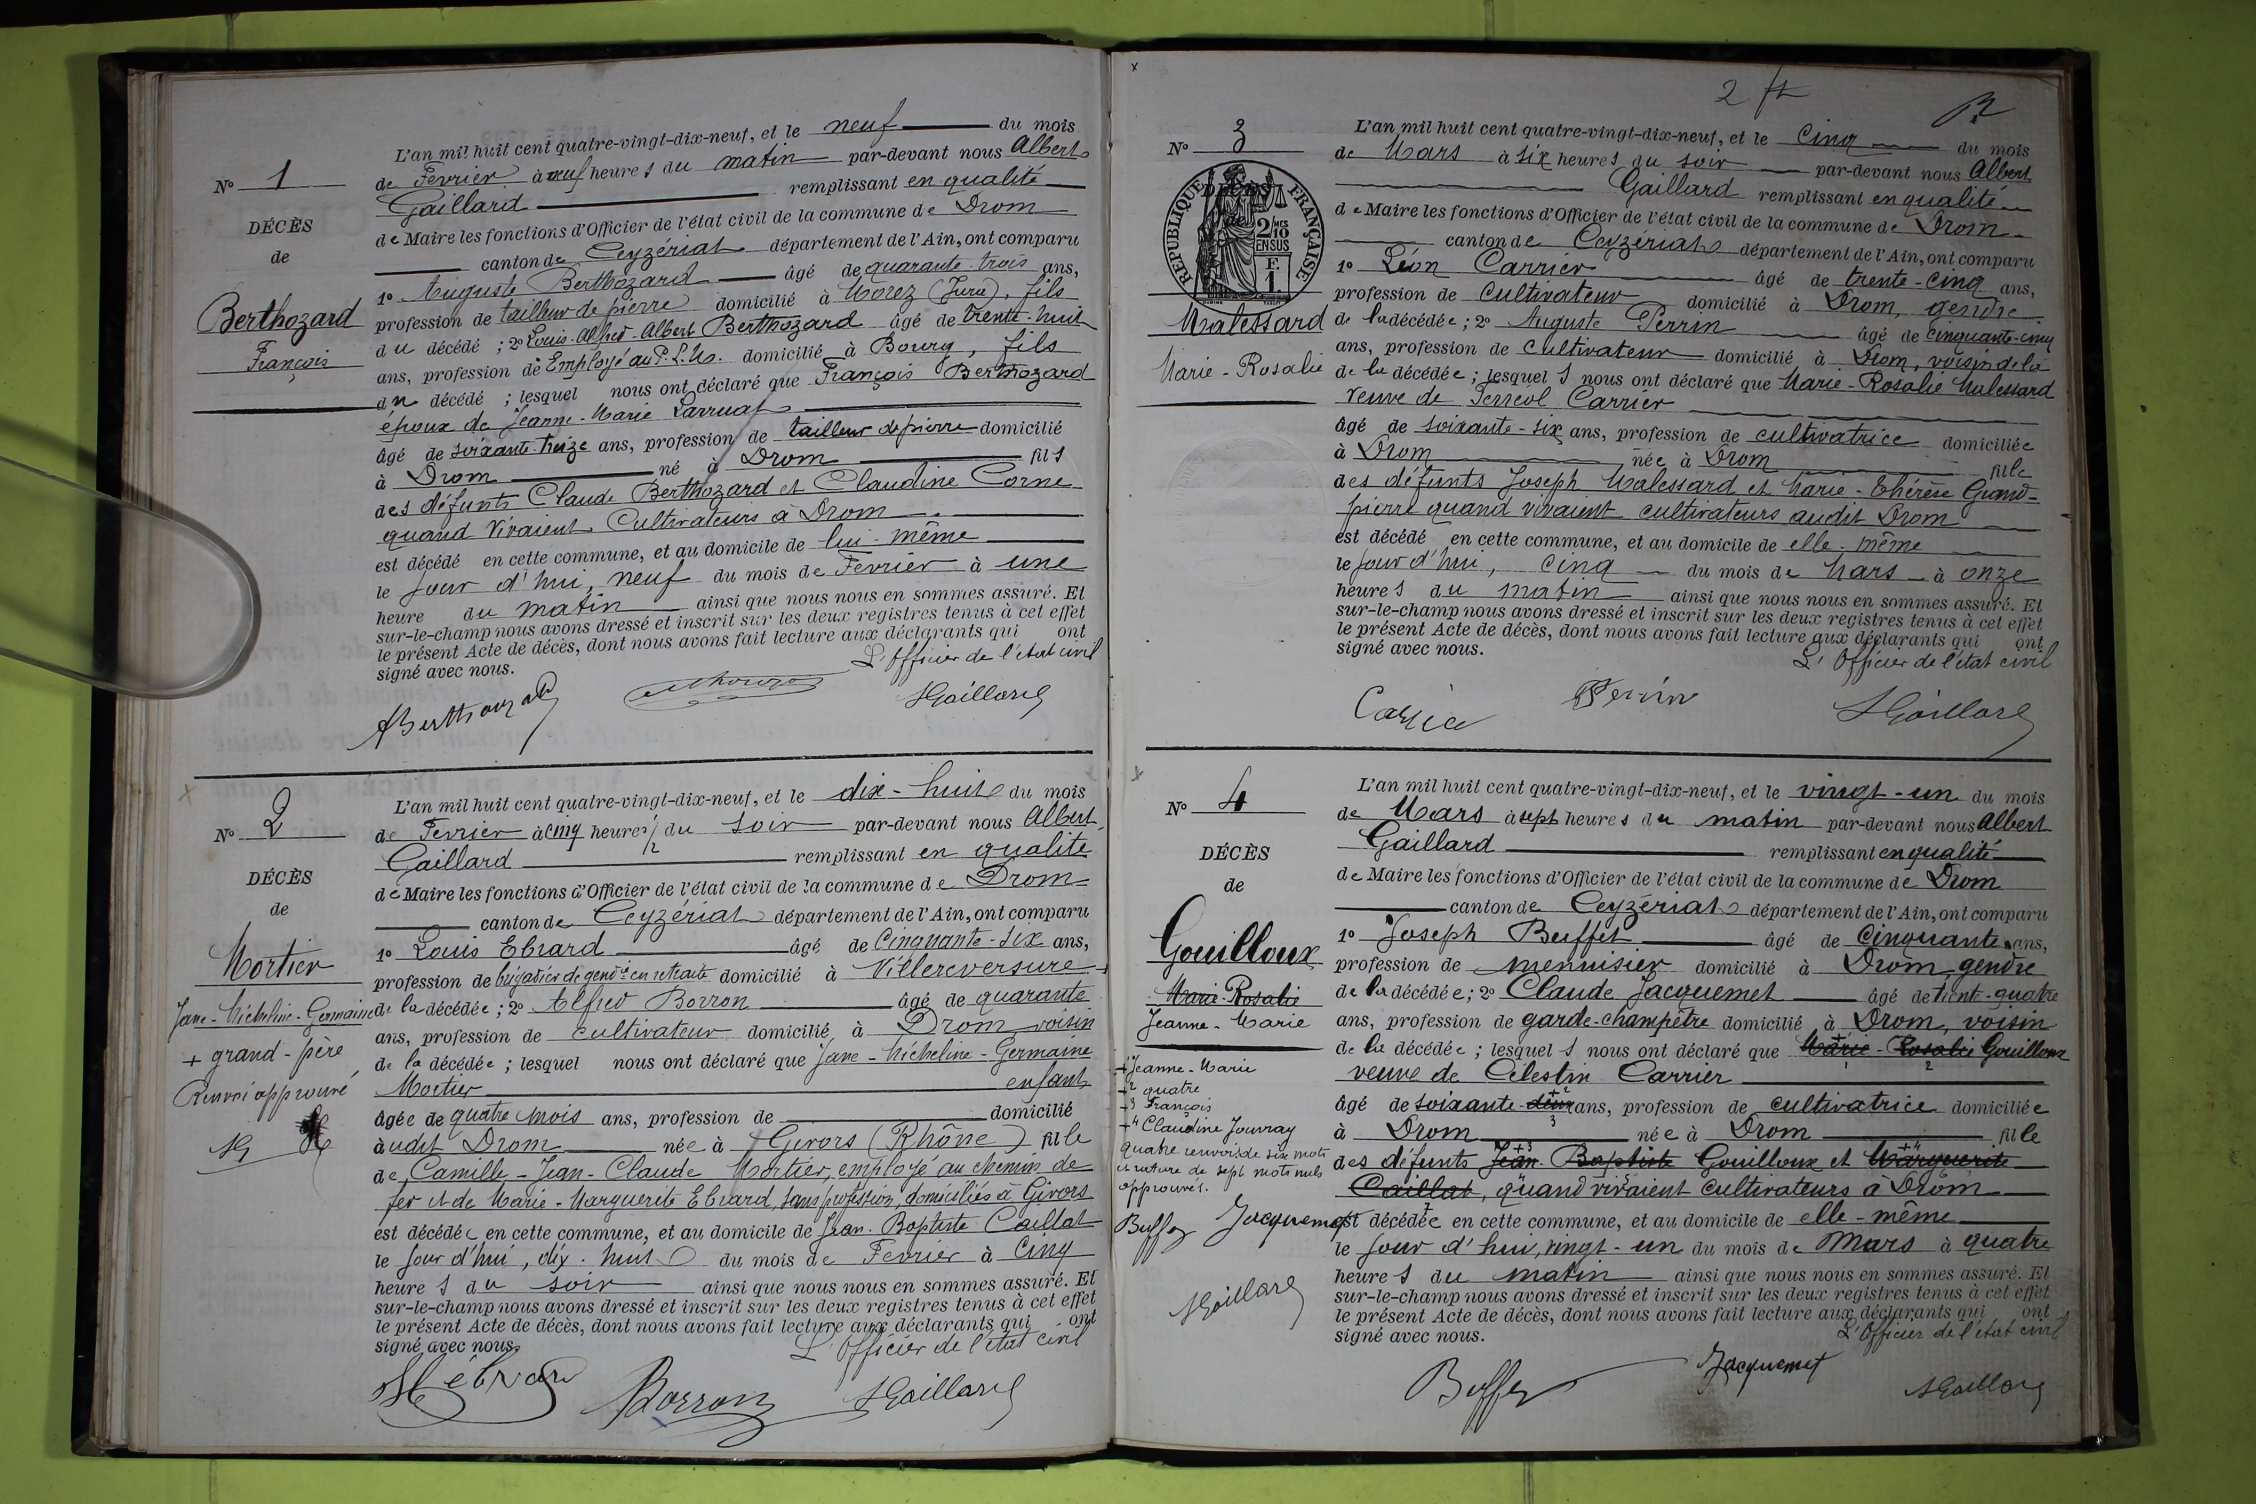 N° 1
DÉCÈS
de
Berthozard
François
L'an mil huit cent quatre-vingt-dix-neuf, et le neuf du mois
de Fevrier à neuf heures du matin par-devant nous Albert
Gaillard remplissant en qualité
de Maire les fonctions d'Officier de l'état civil de la commune de Drom
canton de Ceyzériat département de l'Ain, ont comparu
1° Auguste Berthozard âgé de quarante-trois ans,
profession de tailleur de pierre domicilié à Morez (Jura), fils
du décédé ; 2° Louis-Alfred-Albert Berthozard âgé de trente-huit
ans, profession de Employé au P.L.M. domicilié à Bourg, fils
du décédé ; lesquel nous ont déclaré que François Berthozard
époux de Jeanne-Marie Larruat
âgé de soixante-treize ans, profession de tailleur de pierre domicilié
à Drom né à Drom fils
des défunts Claude Berthozard et Claudine Corne
quand vivaient Cultivateurs à Drom
est décédé en cette commune, et au domicile de lui-même
le jour d'hui, neuf du mois de Fevrier à une
heure du matin ainsi que nous nous en sommes assuré. Et
sur-le-champ nous avons dressé et inscrit sur les deux registres tenus à cet effet
le présent Acte de décès, dont nous avons fait lecture aux déclarants qui ont
signé avec nous.
L'Officier de l'état civil
ABerthozard
AGaillard
N° 2
DÉCÈS
de
Mortier
Jane-Micheline-Germaine
+ grand-père
Renvoi approuvé
L'an mil huit cent quatre-vingt-dix-neuf, et le dix-huit du mois
de Fevrier à cinq heures 1/2 du soir par-devant nous Albert
Gaillard remplissant en qualité
de Maire les fonctions d'Officier de l'état civil de la commune de Drom
canton de Ceyzériat département de l'Ain, ont comparu
1° Louis Ebrard âgé de Cinquante-six ans,
profession de brigadier de gend.ie en retraite domicilié à Villereversure +
de la décédée ; 2° Alfred Borron âgé de quarante
ans, profession de cultivateur domicilié à Drom voisin
de la décédée ; lesquel nous ont déclaré que Jane-Micheline-Germaine
Mortier enfant
âgée de quatre mois ans, profession de domicilié
àudit Drom née à Givors (Rhône) fille
de Camille-Jean-Claude Mortier, employé au chemin de
fer et de Marie-Marguerite Ebrard, sans profession, domiciliés à Givors
est décédée en cette commune, et au domicile de Jean-Baptiste Caillat
le jour d'hui, dix-huit du mois de Fevrier à Cinq
heures du soir ainsi que nous nous en sommes assuré. Et
sur-le-champ nous avons dressé et inscrit sur les deux registres tenus à cet effet
le présent Acte de décès, dont nous avons fait lecture aux déclarants qui ont
signé avec nous.
L'Officier de l'état civil
Hébrard
ABorron
AGaillard
2
N° 3
DÉCÈS
de
RÉPUBLIQUE FRANÇAISE
2/10MES
EN SUS
F.
1.
Malessard
Marie-Rosalie
L'an mil huit cent quatre-vingt-dix-neuf, et le Cinq du mois
de Mars à six heures du soir par-devant nous Albert
Gaillard remplissant en qualité
de Maire les fonctions d'Officier de l'état civil de la commune de Drom
canton de Ceyzériat département de l'Ain, ont comparu
1° Léon Carrier âgé de trente-cinq ans,
profession de Cultivateur domicilié à Drom, gendre
de la décédée ; 2° Auguste Perrin âgé de cinquante-cinq
ans, profession de cultivateur domicilié à Drom, voisin de la
de la décédée ; lesquels nous ont déclaré que Marie-Rosalie Malessard
veuve de Ferréol Carrier
âgé de soixante-six ans, profession de cultivatrice domiciliée
à Drom née à Drom fille
des défunts Joseph Malessard et Marie-Thérèse Grand-
pierre quand vivaient cultivateurs audit Drom
est décédé en cette commune, et au domicile de elle-même
le jour d'hui, cinq du mois de Mars à onze
heures du matin ainsi que nous nous en sommes assuré. Et
sur-le-champ nous avons dressé et inscrit sur les deux registres tenus à cet effet
le présent Acte de décès, dont nous avons fait lecture aux déclarants qui ont
signé avec nous.
L'Officier de l'état civil
Carrier
Perrin
AGaillard
N° 4
DÉCÈS
de
Gouilloux
Marie-Rosalie
Jeanne-Marie
+1 Jeanne-Marie
+2 quatre
+3 François
+4 Claudine Jouvray
Quatre renvois de six mots
et rature de sept mots nuls
approuvés.
Buffet Jacquemet
AGaillard
L'an mil huit cent quatre-vingt-dix-neuf, et le vingt-un du mois
de Mars à sept heures du matin par-devant nous Albert
Gaillard remplissant en qualité
de Maire les fonctions d'Officier de l'état civil de la commune de Drom
canton de Ceyzériat département de l'Ain, ont comparu
1° Joseph Buffet âgé de Cinquante ans,
profession de menuisier domicilié à Drom, gendre
de la décédée ; 2° Claude Jacquemet âgé de trente-quatre
ans, profession de garde-champêtre domicilié à Drom, voisin
de la décédée ; lesquels nous ont déclaré que Marie-Rosalie Gouilloux
veuve de Célestin Carrier
âgé de soixante-deux ans, profession de cultivatrice domiciliée
à Drom née à Drom fille
des défunts Jean-Baptiste Gouilloux et Marguerite
Caillat, quand vivaient cultivateurs à Drom
est décédée en cette commune, et au domicile de elle-même
le jour d'hui, vingt-un du mois de Mars à quatre
heures du matin ainsi que nous nous en sommes assuré. Et
sur-le-champ nous avons dressé et inscrit sur les deux registres tenus à cet effet
le présent Acte de décès, dont nous avons fait lecture aux déclarants qui ont
signé avec nous.
L'Officier de l'état civil
Buffet
Jacquemet
AGaillard